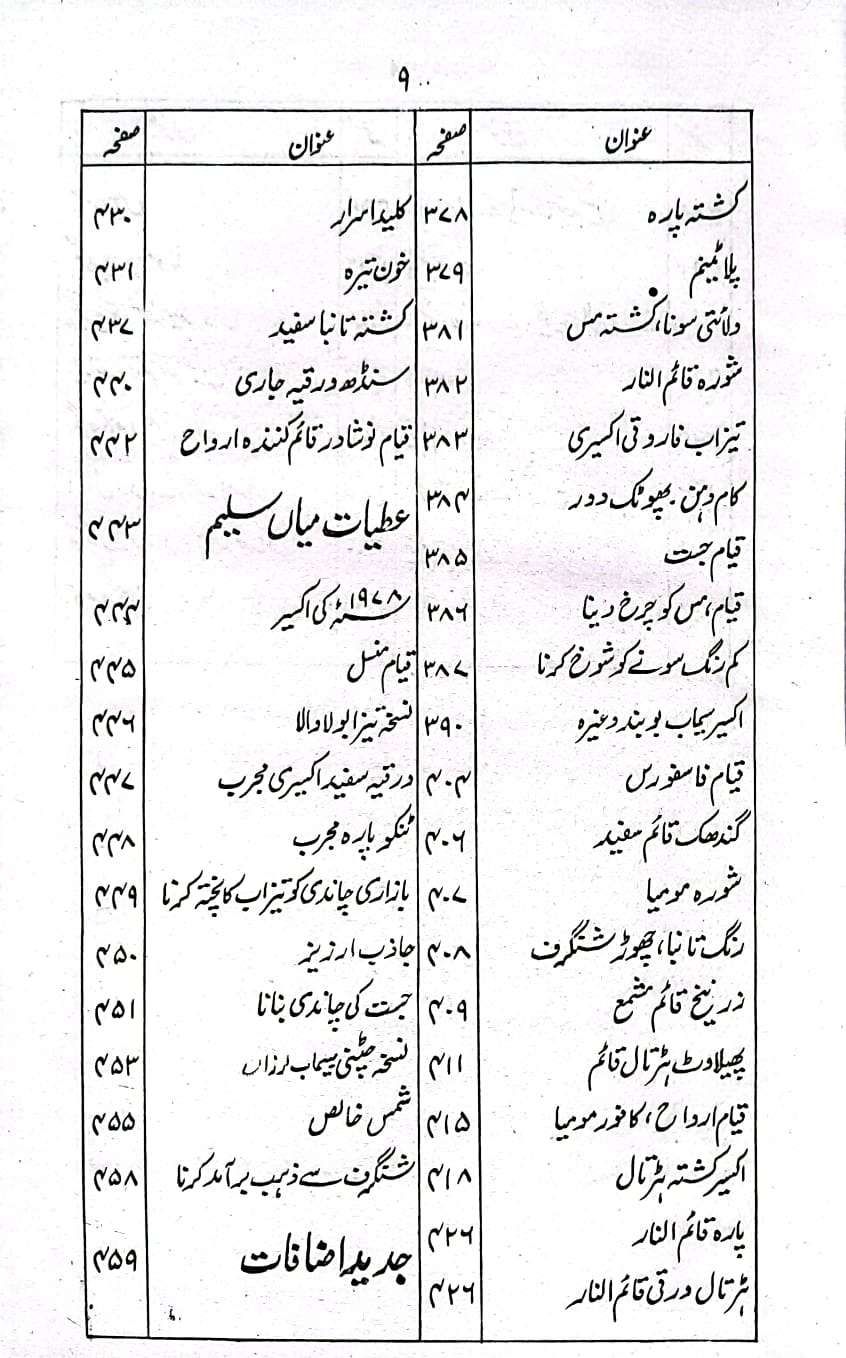 ۹
عنوان صفحہ عنوان صفحہ
کشتہ پارہ ۳۷۸ کلید اسرار ۴۳۰
پلاٹینم ۳۷۹ خون تیرہ ۴۳۱
ولائتی سونا، کشتہ مس ۳۸۱ کشتہ تانبا سفید ۴۳۷
شورہ قائم النار ۳۸۲ سنڈھ ورقیہ جاری ۴۴۰
تیزاب فاروقی اکسیری ۳۸۳ قیام نوشادر قائم کنندہ ارواح ۴۴۲
کام دہن۔ پھوٹک دور ۳۸۴ عطیات میاں سلیم ۴۴۳
قیام جست ۳۸۵
قیام، مس کو چرخ دینا ۳۸۶ ۱۹۷۸ء کی اکسیر ۴۴۴
کم رنگ سونے کو شوخ کرنا ۳۸۷ قیام منسل ۴۴۵
اکسیر سیماب بوبند وغیرہ ۳۹۰ نسخہ تیزابولا والا ۴۴۶
قیام فاسفورس ۴۰۴ ورقیہ سفید اکسیری مجرب ۴۴۷
گندھک قائم سفید ۴۰۶ ٹنکو پارہ مجرب ۴۴۸
شورہ مومیا ۴۰۷ بازاری چاندی کو تیزاب کا پختہ کرنا ۴۴۹
رنگ تانبا، چھوڑ شنگرف ۴۰۸ جاذب ارزیز ۴۵۰
زرنیخ قائم مشمع ۴۰۹ جست کی چاندی بنانا ۴۵۱
پھیلاوٹ ہڑتال قائم ۴۱۱ نسخہ چٹنی سیماب لرزاں ۴۵۳
قیام ارواح، کافور مومیا ۴۱۵ شمس خالص ۴۵۵
اکسیر کشتہ ہڑتال ۴۱۸ شنگرف سے ذہب برآمد کرنا ۴۵۸
پارہ قائم النار ۴۲۶ جدید اضافات ۴۵۹
ہڑتال ورقی قائم النار ۴۲۶